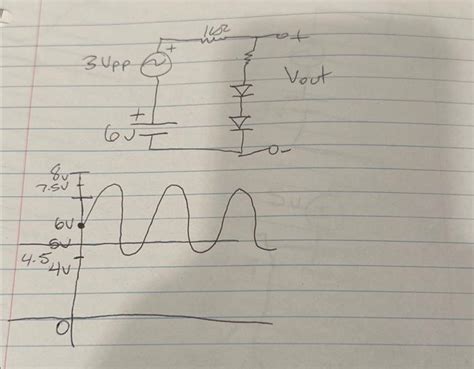 1kΩ
+
o+
3Vpp
Vout
+
6V
o-
8v
7.5v
6V
5v
4.5
4v
0